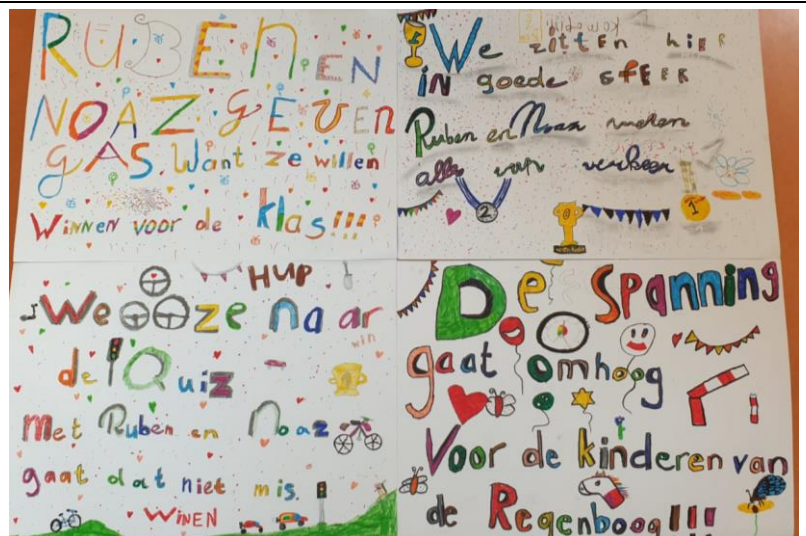 RUBEN EN
NOAZ GEVEN
GAS. Want ze willen
WINNEN VOOR de klas!!!
We zitten hier
in goede sfeer
Ruben en Noaz weten
alles van verkeer
2
1
HUP
We ze naar
de Quiz
win
Met Ruben en Noaz
gaat dat niet mis.
WINEN
De Spanning
gaat omhoog
Voor de kinderen van
de Regenboog!!!